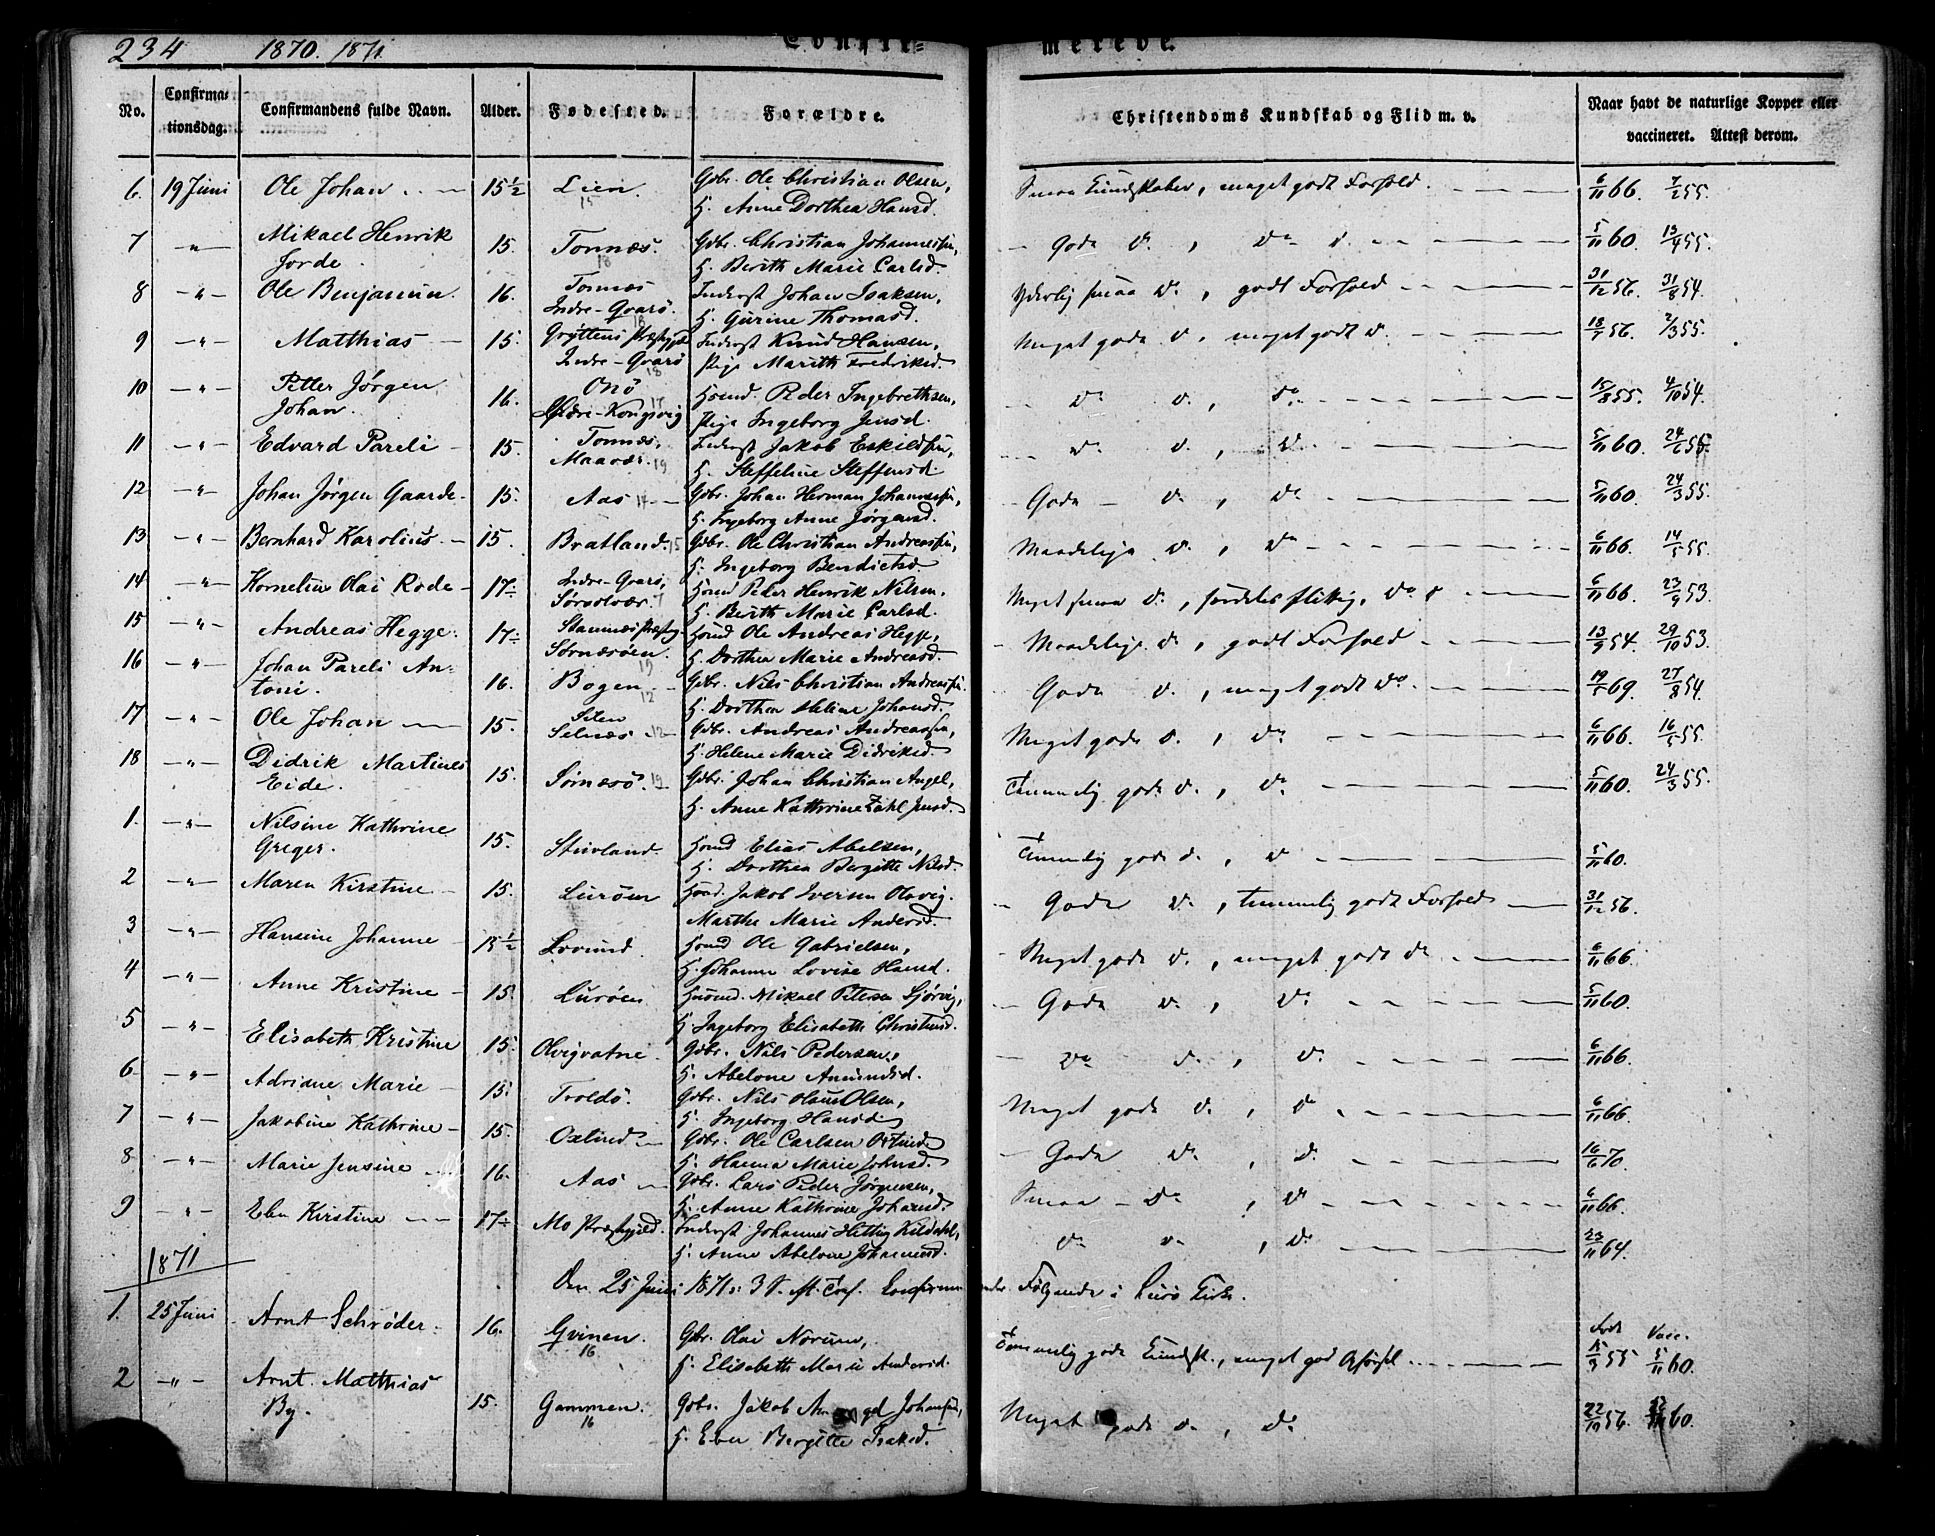 234 1870. 1871. Confir= merede.
No. Confirma= tionsdag. Confirmandens fulde Navn. Alder. Fødested. Forældre. Christendoms Kundskab og Flid m. v. Naar havt de naturlige Kopper eller vaccineret. Attest derom.
6. 19 Juni Ole Johan 15½ Lien 15 Gdbr. Ole Christian Olsen, H. Anne Dorthea Hansd. Smaa Kundskaber, meget godt Forhold. 6/11 66. 7/2 55.
7 -"- Mikael Henrik Jorde. 15. Tonnæs. 18 Gdbr. Christian Johannessen, H. Berith Marie Carlsd. Gode do., do do. 5/11 60. 13/4 55.
8 -"- Ole Benjamin. 16. Tonnæs Indre-Qvarø. 18 Inderst Johan Isaksen, H. Gurine Thomasd. Yderlig smaa do, godt Forhold 31/12 56. 31/8 54.
9 -"- Matthias 15. Grøttens Præstgjd Indre-Qvarø 18 Inderst Knud Hansen, Pige Marith Fredriksd. Meget gode do, meget godt do. 18/7 56. 2/3 55.
10 -"- Petter Jørgen Johan. 16. Onø Ydre-Kongsvig 17 Huusmd. Peder Ingebrethsen, Pige Ingeborg Jensd. do do, do. 15/8 55. 4/10 54.
11 -"- Edvard Pareli 15. Tonnæs. Maavær. 19 Inderst Jakob Eskildsen, H. Steffeline Steffensd do do, do. 5/11 60. 24/6 55.
12 -"- Johan Jørgen Gaarde 15. Aas 14 Gdbr. Johan Herman Johannessen, H. Ingeborg Anne Jørgensd. Gode do, do 5/11 60. 24/3 55.
13 -"- Bernhard Karolius. 15. Bratland. 15 Gdbr. Ole Christian Andreassen, H. Ingeborg Bendictsd Maadelige do, do 6/11 66. 14/5 55.
14 -"- Kornelius Olai Rode 17 Indre-Qvarø, Sørsolvær. Huusmd Peder Henrik Nilsen, H. Berith Marie Carlsd. Meget smaa do, særdeles flittig, do 6/11 66. 23/9 53.
15 -"- Andreas Hegge. 17 Stamnæs Præstg. Sørnæsøen. 19 Huusmd Ole Andreas Hegge, H. Dorthea Marie Andreasd. Maadelige do, godt Forhold 13/9 54. 29/10 53.
16 -"- Johan Pareli Antoni. 16. Bogen 12 Gdbr. Nils Christian Andreassen. H. Dorthea Helene Johansd. Gode do, meget godt do. 19/5 69. 27/8 54.
17 -"- Ole Johan 15. Silen Selnæs 12 Gdbr. Andreas Andreassen, H. Helene Marie Didriksd. Meget gode do, do 6/11 66. 16/5 55.
18 -"- Didrik Martines Eide. 15. Sørnæsø. 19 Gdbr. Johan Christian Angel, H. Anne Kathrine Zahl Jensd. Temmelig gode do, do 5/11 60. 24/3 55.
1. -"- Nilsine Kathrine Greger. 15. Stuvland. Huusmd Elias Abelsen, H. Dorthea Bergitte Nilsd. Temmelig gode do, do 5/11 60.
2 -"- Maren Kirstine 15. Lurøen Huusmd. Jakob Iversen Olsvig. Marthe Marie Andersd. Gode do, temmelig godt Forhold 31/12 56.
3 -"- Hansine Johanne 15½ Lovund. Huusmd Ole Gabrielsen, H. Johanne Lovise Hansd. Meget gode do, meget godt do 6/11 66.
4 -"- Anne Kristine 15 Lurøen Huusmd. Mikael Petersen Sjørvig, H. Ingeborg Elisabeth Christensd. Gode do, do. 5/11 60.
5 -"- Elisabeth Kristine 15. Olvigvatne. Gdbr. Nils Pedersen, H. Abelone Amundsd. do do, do. 6/11 66.
6 -"- Adriane Marie 15. Troldø. Gdbr. Nils Hans Olsen, H. Ingeborg Hansd. Meget gode do, do 6/11 66.
7 -"- Jakobine Kathrine 15. Oxtind. Gdbr. Ole Carlsen Oxtind H. Hanna Marie Johnsd. Gode do, do. 16/6 70.
8 -"- Marie Jensine 16. Aas Gdbr. Lars Peder Jørgensen, H. Anne Kathrine Johansd. Smaa do, do 6/11 66.
9 -"- Elen Kirstine 17 Mo Præstegjeld. Inderst Johannes Hettig Kildahl, H. Anne Abelone Johannesd. do do, do 23/11 64.
1871
Den 25 Juni 1871: 3 S. eft. Tref. Confirmerede Følgende i Lurø Kirke.
1. 25 Juni Arnt Schrøder 16. Qvinen. 16 Gbr. Olai Norum, H. Elisabeth Marie Andersd. Temmelig gode Kundsk., meget god Opførsel. Født 15/9 55 Vacc. 5/11 60.
2 -"- Arnt Matthias By. 15. Gammen. 16 Gdbr. Jakob Angel Johansen, H. Ellen Bergitte Isaksd. Meget gode do, do 22/10 56. 60.